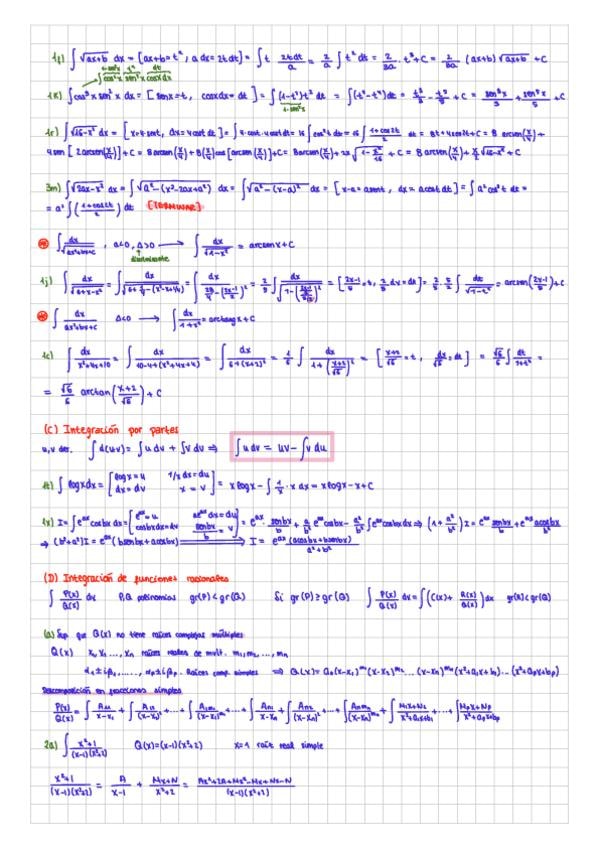 ∫ √(ax+b) dx = [ax+b = t², a dx = 2t dt] = ∫ t 2t dt/a = 2/a ∫ t² dt = 2/3a · t³ + C = 2/3a (ax+b) √(ax+b) + C
∫ cos³x sen²x dx = [sen x = t, cos x dx = dt] = ∫ (1-t²)t² dt = ∫ (t²-t⁴) dt = t³/3 - t⁵/5 + C = sen³x/3 + sen⁵x/5 + C
∫ √(16-x²) dx = [x = 4 sent, dx = 4 cost dt] = ∫ 4 cost · 4 cost dt = 16 ∫ cos²t dt = 16 ∫ (1+cos2t)/2 dt = 8t + 4 sen2t + C = 8 arcsen(x/4) +
4 sen [2 arcsen(x/4)] + C = 8 arcsen(x/4) + 8(x/4) cos[arcsen(x/4)] + C = 8 arcsen(x/4) + 2x √(1 - x²/16) + C = 8 arcsen(x/4) + x/2 √(16-x²) + C
3m) ∫ √(2ax-x²) dx = ∫ √(a²-(x²-2ax+a²)) dx = ∫ √(a²-(x-a)²) dx = [x-a = a sent, dx = a cost dt] = ∫ a² cos²t dt =
= a² ∫ ((1+cos2t)/2) dt [TERMINAR]
∫ dx/√(ax²+bx+c) , a<0, Δ>0 → ∫ dx/√(1-x²) = arcsen x + C
discriminante
1j) ∫ dx/√(6+x-x²)
∫ dx/(ax²+bx+c) Δ<0 → ∫ dx/(1+x²) = arctang x + C
1c) ∫ dx/(x²+4x+10) = ∫ dx/(10-4+(x²+4x+4)) = ∫ dx/(6+(x+2)²) = 1/6 ∫ dx/(1+((x+2)/√6)²) = [(x+2)/√6 = t, dx/√6 = dt] = √6/6 ∫ dt/(1+t²) =
= √6/6 arctan((x+2)/√6) + C
(C) Integración por partes
u, v der. ∫ d(u·v) = ∫ u dv + ∫ v du ⇒ ∫ u dv = uv - ∫ v du
1t) ∫ log x dx = [log x = u 1/x dx = du dx = dv x = v] = x log x - ∫ 1/x · x dx = x log x - x + C
1x) I = ∫ e^ax cos bx dx = [e^ax = u a e^ax dx = du cos bx dx = dv sen bx/b = v] = e^ax · sen bx/b + a/b² e^ax cos bx - a²/b² ∫ e^ax cos bx dx ⇒ (1 + a²/b²) I = e^ax sen bx/b + e^ax a cos bx/b²
⇒ (b²+a²) I = e^ax (b sen bx + a cos bx) ⇒ I = e^ax (a cos bx + b sen bx)/(a²+b²)
(D) Integración de funciones racionales
∫ P(x)/Q(x) dx P,Q polinomios gr(P)<gr(Q) Si gr(P)≥gr(Q) ∫ P(x)/Q(x) dx = ∫ (C(x) + R(x)/Q(x)) dx gr(R)<gr(Q)
(a) Sup. que Q(x) no tiene raíces complejas múltiples
Q(x) x₁, x₂, ..., xₙ raíces reales de mult. m₁, m₂, ..., mₙ
α₁±iβ₁, ...., αp±iβp. Raíces comp. simples ⇒ Q(x) = a₀(x-x₁)^m₁ (x-x₂)^m₂ ... (x-xₙ)^mₙ (x²+a₁x+b₁) ... (x²+apx+bp)
Descomposición en fracciones simples
2a) ∫ (x²+1)/((x-1)(x²+2)) Q(x) = (x-1)(x²+2) x=1 raíz real simple
(x²+1)/((x-1)(x²+2)) = A/(x-1) + (Mx+N)/(x²+2) = (Ax²+2A+Mx²-Mx+Nx-N)/((x-1)(x²+2))